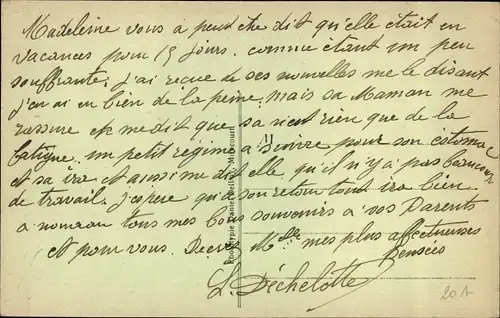 Madeleine vous a peut être dit qu'elle était en
vacances pour 15 jours. comme étant un peu
souffrante; j'ai recue de ses nouvelles me le disant
j'en ai eu bien de la peine, mais sa Maman me
rassure et me dit que sa n'est rien que de la
fatigue. un petit régime à suivre pour son estomac
et sa ira et aussi me dit elle, qu'il n'y a pas beaucoup
de travail. j'espere qu'a son retour tout ira bien.
a nouveau tous mes bons souvenirs à vos Parents
et pour vous. Recevez Mlle mes plus affectueuses
Pensées
L. Déchelotte
Phototypie Daniel Delboy, Mirecourt
20 A